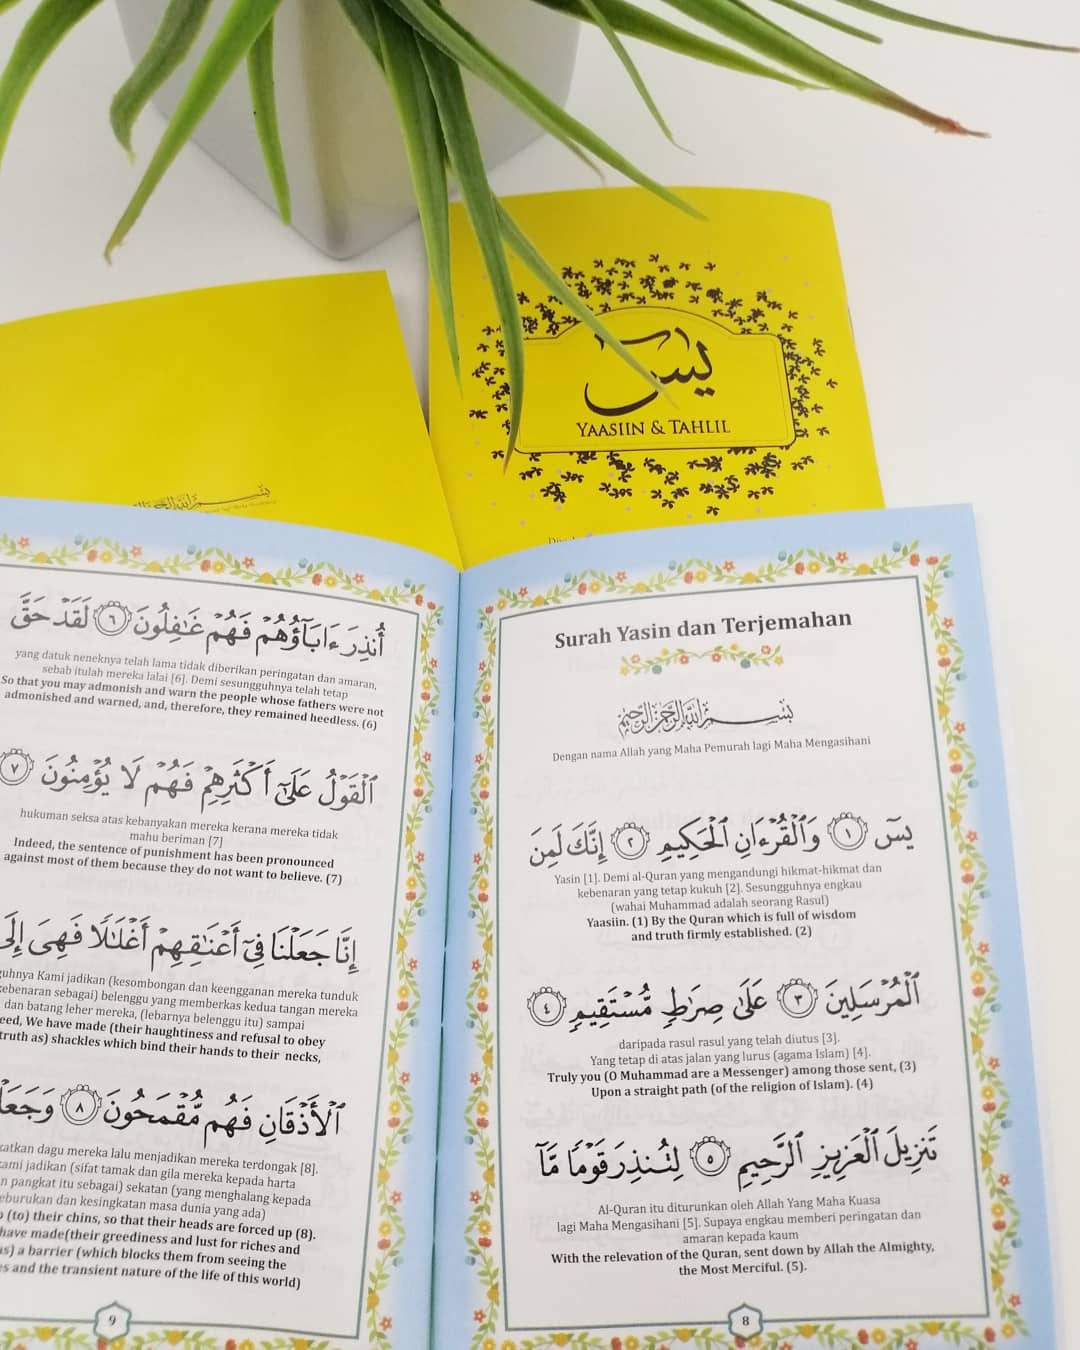 يسٓ
YAASIIN & TAHLIL
Surah Yasin dan Terjemahan
بِسْمِ ٱللَّهِ ٱلرَّحْمَٰنِ ٱلرَّحِيمِ
Dengan nama Allah yang Maha Pemurah lagi Maha Mengasihani
يسٓ ١ وَٱلْقُرْءَانِ ٱلْحَكِيمِ ٢ إِنَّكَ لَمِنَ
Yasin [1]. Demi al-Quran yang mengandungi hikmat-hikmat dan
kebenaran yang tetap kukuh [2]. Sesungguhnya engkau
(wahai Muhammad adalah seorang Rasul)
Yaasiin. (1) By the Quran which is full of wisdom
and truth firmly established. (2)
ٱلْمُرْسَلِينَ ٣ عَلَىٰ صِرَٰطٍ مُّسْتَقِيمٍ ٤
daripada rasul rasul yang telah diutus [3].
Yang tetap di atas jalan yang lurus (agama Islam) [4].
Truly you (O Muhammad are a Messenger) among those sent, (3)
Upon a straight path (of the religion of Islam). (4)
تَنزِيلَ ٱلْعَزِيزِ ٱلرَّحِيمِ ٥ لِتُنذِرَ قَوْمًا مَّآ
Al-Quran itu diturunkan oleh Allah Yang Maha Kuasa
lagi Maha Mengasihani [5]. Supaya engkau memberi peringatan dan
amaran kepada kaum
With the relevation of the Quran, sent down by Allah the Almighty,
the Most Merciful. (5).
8
أُنذِرَ ءَابَآؤُهُمْ فَهُمْ غَٰفِلُونَ ٦ لَقَدْ حَقَّ
yang datuk neneknya telah lama tidak diberikan peringatan dan amaran,
sebab itulah mereka lalai [6]. Demi sesungguhnya telah tetap
So that you may admonish and warn the people whose fathers were not
admonished and warned, and, therefore, they remained heedless. (6)
ٱلْقَوْلُ عَلَىٰٓ أَكْثَرِهِمْ فَهُمْ لَا يُؤْمِنُونَ ٧
hukuman seksa atas kebanyakan mereka kerana mereka tidak
mahu beriman [7]
Indeed, the sentence of punishment has been pronounced
against most of them because they do not want to believe. (7)
إِنَّا جَعَلْنَا فِىٓ أَعْنَٰقِهِمْ أَغْلَٰلًا فَهِىَ إِلَى
Kami jadikan (kesombongan dan keengganan mereka tunduk
sebagai) belenggu yang memberkas kedua tangan mereka
dan batang leher mereka, (lebarnya belenggu itu) sampai
We have made (their haughtiness and refusal to obey
truth as) shackles which bind their hands to their necks,
ٱلْأَذْقَانِ فَهُم مُّقْمَحُونَ ٨
dagu mereka lalu menjadikan mereka terdongak [8].
jadikan (sifat tamak dan gila mereka kepada harta
pangkat itu sebagai) sekatan (yang menghalang kepada
dan kesingkatan masa dunia yang ada)
(to) their chins, so that their heads are forced up (8).
have made(their greediness and lust for riches and
a barrier (which blocks them from seeing the
and the transient nature of the life of this world)
9